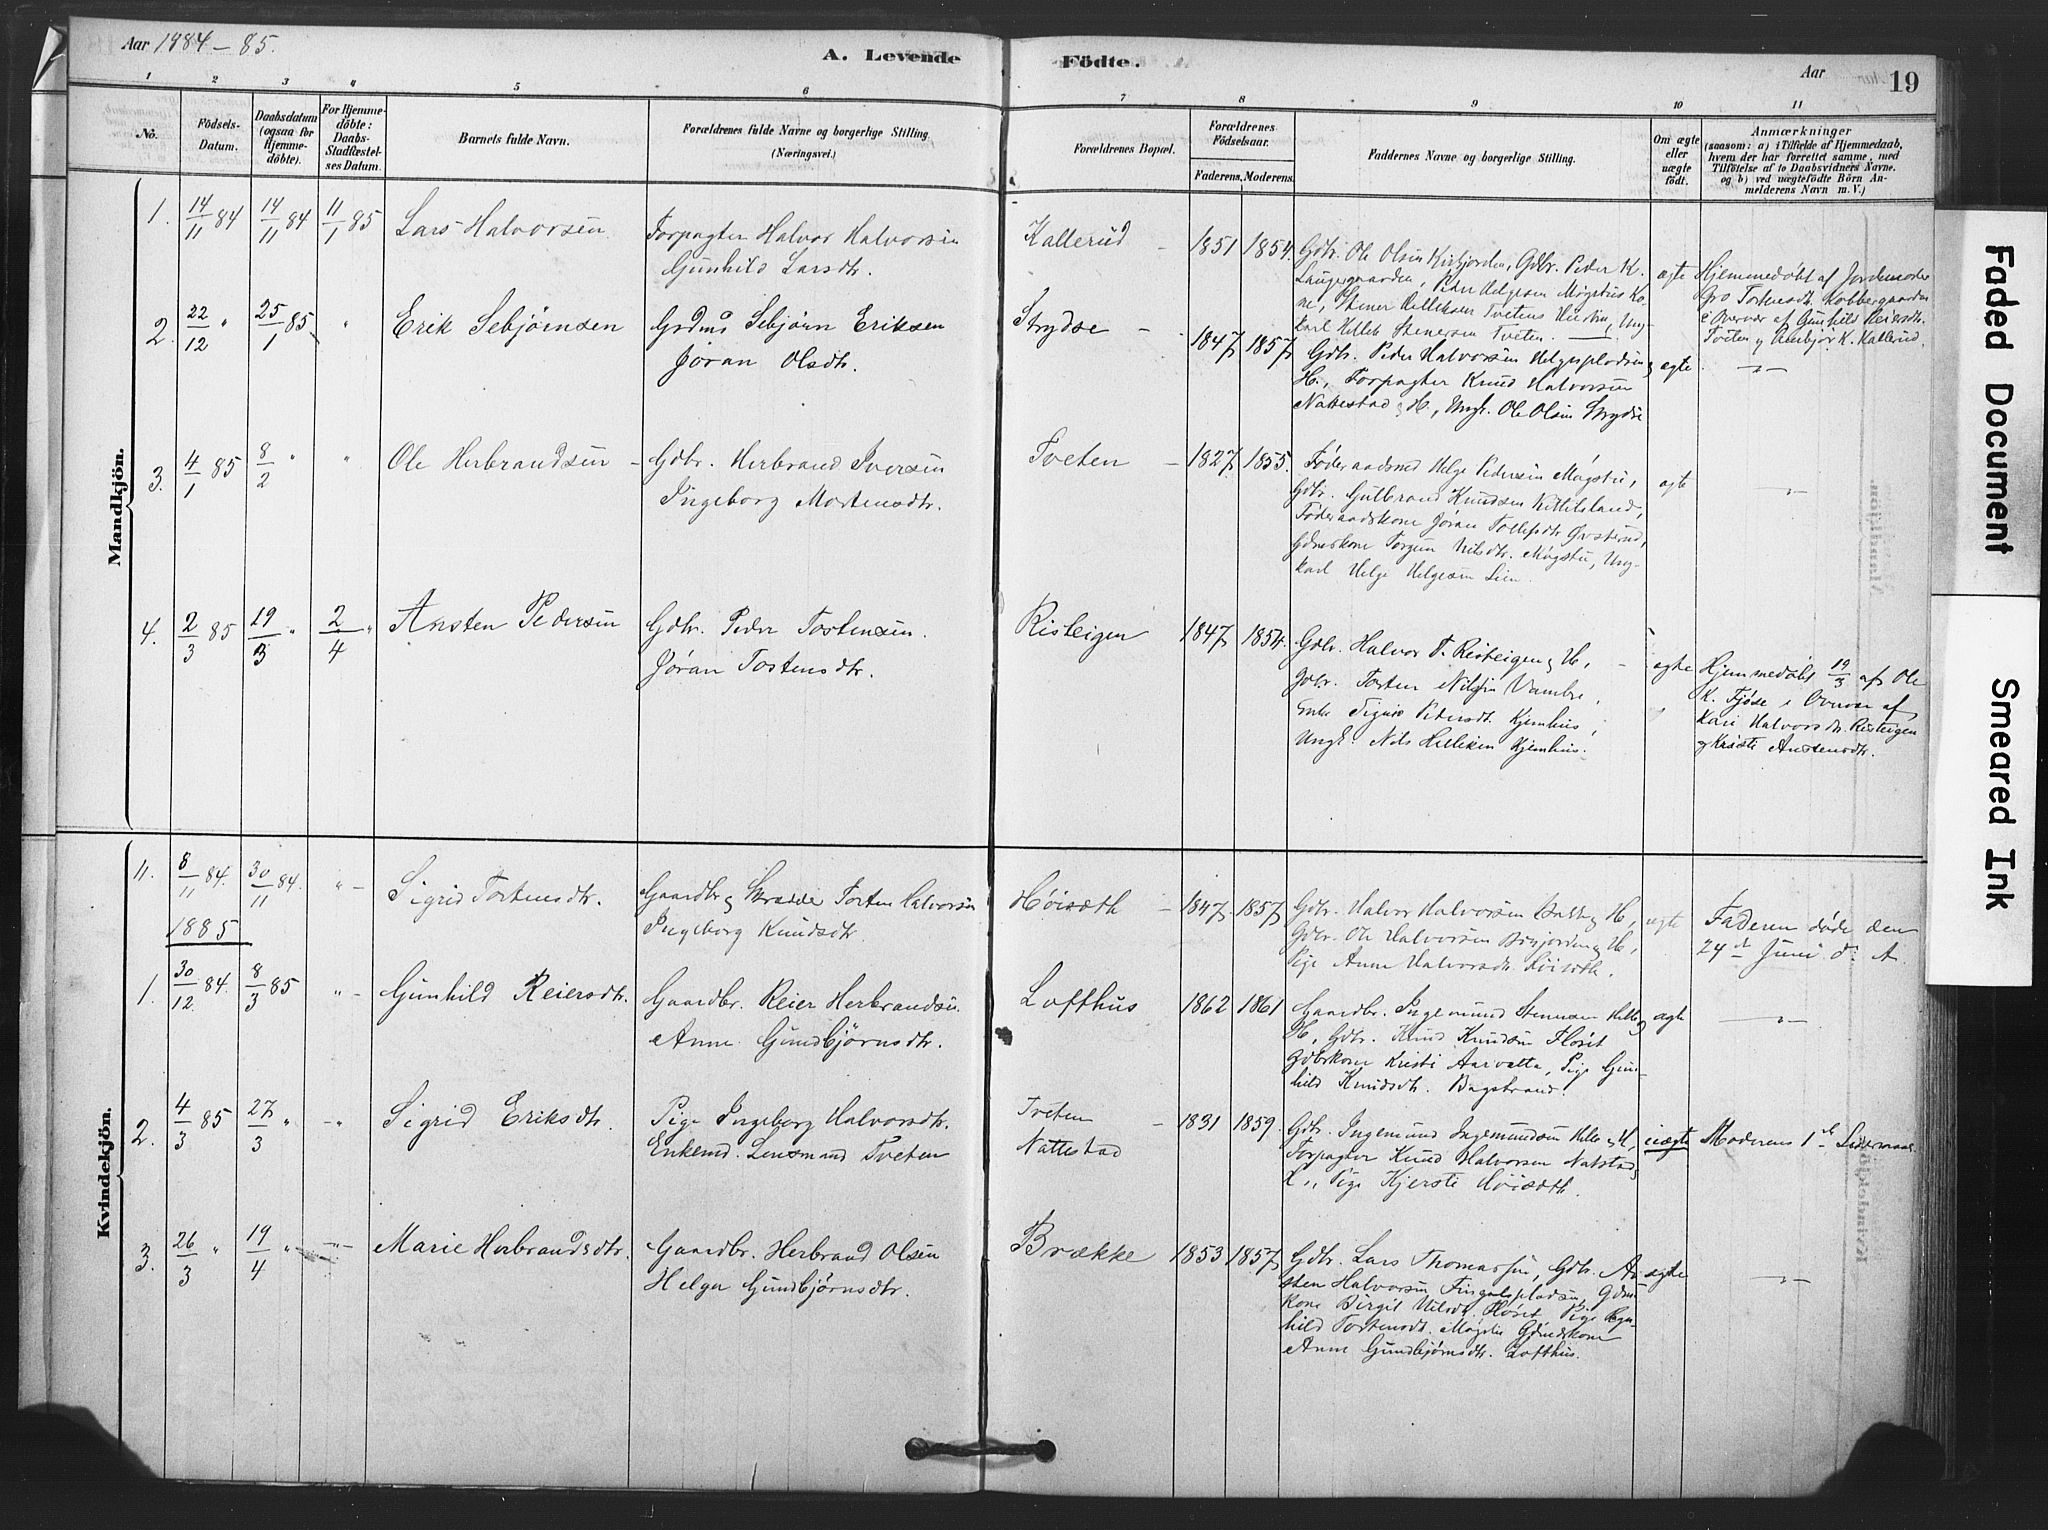 Aar 1884-85.
A. Levende Födte.
Aar
19
1 2 3 4 5 6 7 8 9 10 11
No.
Födsels-Datum.
Daabsdatum (ogsaa for Hjemme-döbte).
For Hjemme-döbte: Daabs-Stadfæstel-ses Datum.
Barnets fulde Navn.
Forældrenes fulde Navne og borgerlige Stilling (Næringsvei.)
Forældrenes Bopæl.
Forældrenes Födselsaar.
Faderens. Moderens.
Faddernes Navne og borgerlige Stilling.
Om ægte eller uægte födt.
Anmærkninger
(saasom: a) i Tilfælde af Hjemmedaab, hvem der har forrettet samme, med Tilföielse af to Daabsvidners Navne. og b) ved uægtefödte Börn An-melderens Navn m. V.)
Mandkjön.
1. 14/11 84 14/11 84 11/1 85 Lars Halvorsen
Forpagter Halvor Halvorsen
Gunhild Larsdtr.
Kallerud - 1851 1854.
Gdbr. Ole Olsen Gdbr. Peder K.
Peder Helgesen Mogstus Ko-
ne, Stener Helleksen Tvetens Hustru, Ung-
karl Hellek Stenersen Tveten.
ægte
Hjemmedöbt af Jordemoder
Gro Tostensdtr. Kobbergaarden
i Overvær af Gunhild Reiersdtr.
Tveten og K. Kallerud.
2. 22/12 " 25/1 85 " Erik Sebjörnsen
Sebjörn Eriksen
Jöran Olsdtr.
Strydse - 1847 1857
Gdbr. Peder Halvorsen Helgesplads og
H., Forpagter Knud Halvorsen
Nattestad og H., Ungk. Ole Olsen Strydse
ægte
3. 4/1 85 8/2 " " Ole Herbrandsen -
Gdbr. Herbrand Iversen
Ingeborg Mortensdtr.
Tveten - 1827 1855.
Föderaadsmd Helge Pedersen Mogstu,
Gdbr. Gulbrand Knudsen Kittilsland,
Föderaadskone Jöran Tollefsdtr
Torgun Nilsdtr. Mogstu, Ung-
karl Helge Helgesen Lien.
ægte
4. 2/3 85 19/3 " 2/4 " Ansten Pedersen
Gdbr. Peder Tostensen.
Jöran Tostensdtr.
Risteigen 1847 1854.
Gdbr. Halvor T. Risteigen og H., -
Gdbr. Tosten Nilsen
Enke Sigrid Pedersdt. Kjemhus,
Ungk. Nils Helleksen Kjemhus.
ægte
Hjemmedöbt 19/3 af Ole
K. Fjöse i Overvær af
Kari Halvorsdtr. Risteigen
og Kristi Anstensdtr.
Kvindekjön.
11. 8/11 84. 30/11 84. " - Sigrid Tostensdtr.
Gaardbr og Skrædder Tosten Halvorsen
Ingeborg Knudsdtr.
Höisæth - 1847. 1857
Gdbr. Halvor Halvorsen og H,
Gdbr. Ole Halvorsen og H,
Pige Anne Halvorsdtr. Höisæth.
ægte
Faderen döde den
24de Juni d. A.
1885
1. 30/12 84. 8/3 85 " - Gunhild Reiersdtr.
Gaardbr. Reier Herbrandsen
Anne Gundbjörnsdtr.
Lofthus 1862 1861
Gaardbr. Ingemund Stenersen og
H, Gdbr. Knud Knudsen Floset
Gdbrskone Kristi Aarvatta, Pige Gun-
hild Knudsdtr. Bagstrand.
ægte
2. 4/3 85 27/3 " - " Sigrid Eriksdtr.
Pige Ingeborg Halvorsdtr.
Enkemd. Lensmand Tveten
Tveten
Nattestad
1831 1859.
Gdbr. Ingemund Ingemundsen og H,
Forpagter Knud Halvorsen og
H,, Pige Kjersti Höisæth.
uægte
Moderens 1ste Leiermaal.
3. 26/3 " 19/4 " Marie Herbrandsdtr.
Gaardbr. Herbrand Olsen
Helga Gundbjörnsdtr.
Brække 1853 1857
Gdbr. Lars Thomassen, Gdbr. An-
sten Halvorsen
kone Birgit Nilsdt. Floset, Pige
hild Tostensdt.
Anne Gundbjörnsdtr. Lofthus.
ægte
Faded Document
Smeared Ink